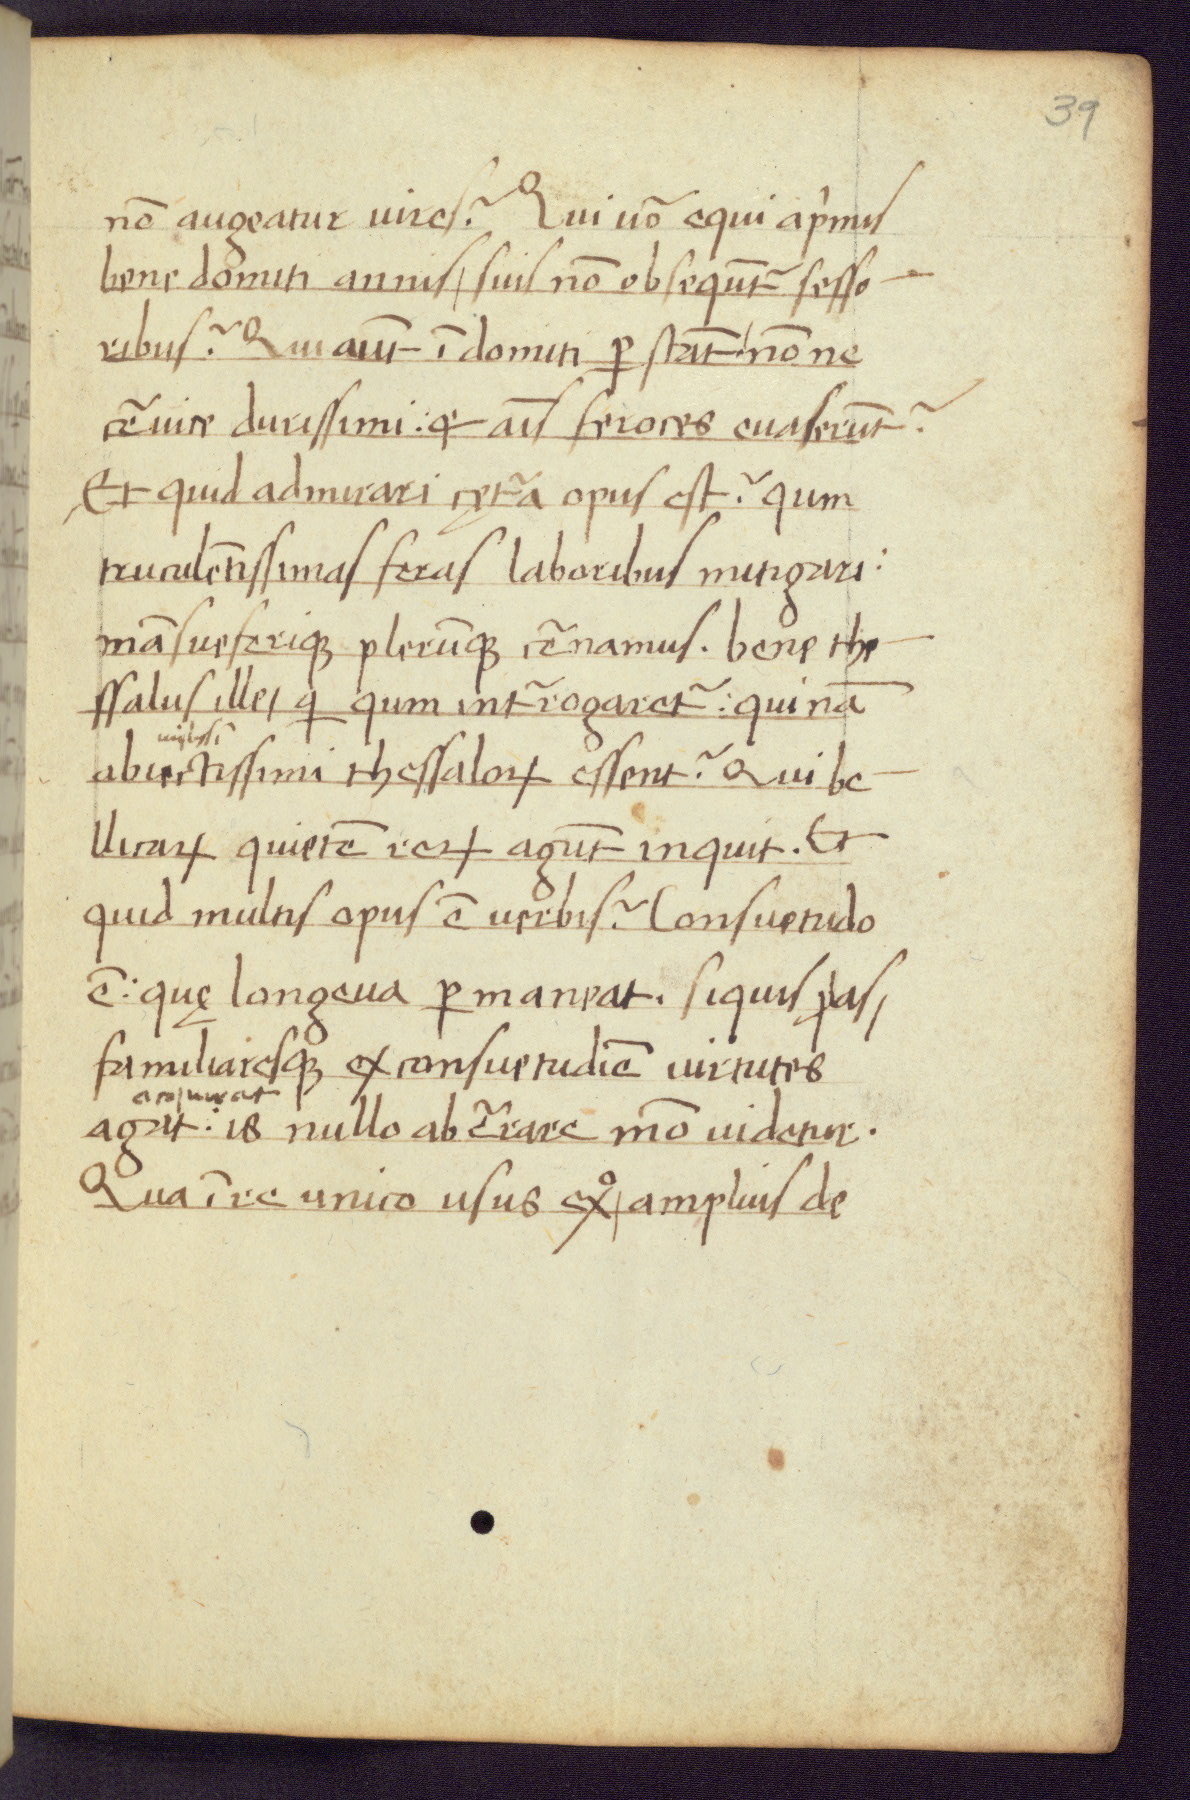 39
nō augeatur uires? Qui uō equi ap͛mis
bene domiti annis, suis nō obsequūt᷑ sesso-
ribus? Qui aūt īdomiti ꝑstāt, nōne
c᷑uice durissimi: & aīs feroces euaserūt?
Et quid admirari cęt᷑a opus est? qum
truculētissimas feras laboribus mitigari:
māsuefieriqꝫ plerūqꝫ c᷑namus. bene the-
ssalus ille, qͥ qum int᷑rogaret᷑: quinā
abiectissimi thessaloꝝ essent? Qui be-
llicaꝝ quietē reꝝ agūt inquit. Et
quid multis opus ē uerbis? Consuetudo
ē: quę longeua ꝑmaneat. siquis
familiaresqꝫ ex consuetudīe uirtutes
acquirat
agat: is nullo ab᷑rare mō uidetur.
Qua ī re unico usus exº, amplius de